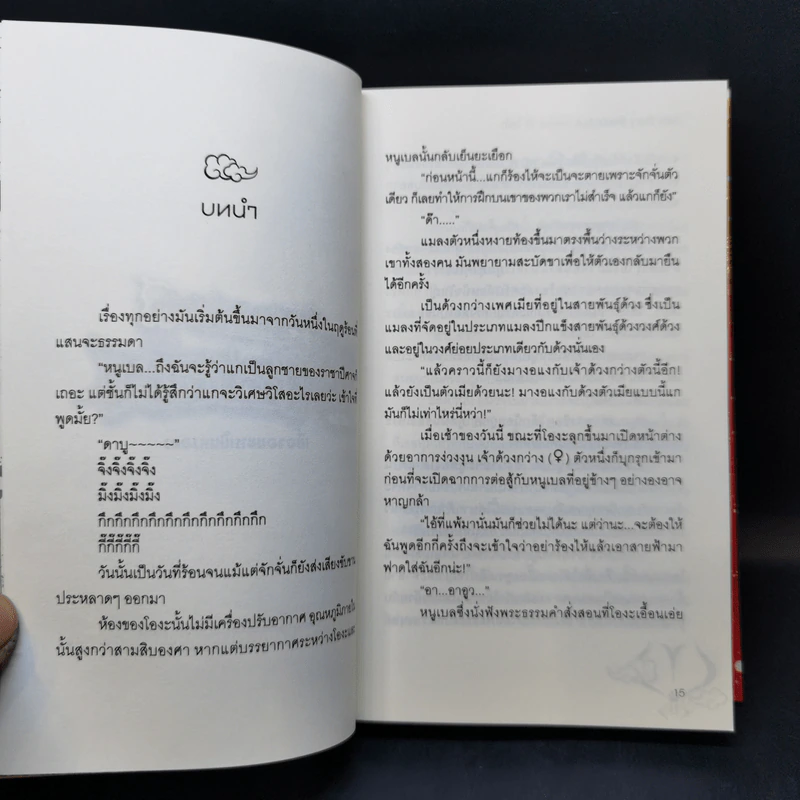 บทนำ
เรื่องทุกอย่างมันเริ่มต้นขึ้นมาจากวันหนึ่งในฤดูร้อนที่
แสนจะธรรมดา
“หนูเบล...ถึงฉันจะรู้ว่าแกเป็นลูกชายของราชาปีศาจก็
เถอะ แต่ชั้นก็ไม่ได้รู้สึกว่าแกจะวิเศษวิโสอะไรเลยว่ะ เข้าใจที่
พูดมั้ย?”
“ดาบู~~~~~”
จิ๊งจิ๊งจิ๊งจิ๊ง
มิ๊งมิ๊งมิ๊งมิ๊ง
กึกกึกกึกกึกกึกกึกกึกกึกกึกกึก
กี๊กี๊กี๊กี๊กี๊
วันนั้นเป็นวันที่ร้อนจนแม้แต่จักจั่นก็ยังส่งเสียงขับขาน
ประหลาดๆ ออกมา
ห้องของโองะนั้นไม่มีเครื่องปรับอากาศ อุณหภูมิภายใน
นั้นสูงกว่าสามสิบองศา หากแต่บรรยากาศระหว่างโองะและ
หนูเบลนั้นกลับเย็นยะเยือก
“ก่อนหน้านี้...แกก็ร้องไห้จะเป็นจะตายเพราะจักจั่นตัว
เดียว ก็เลยทำให้การฝึกบนเขาของพวกเราไม่สำเร็จ แล้วแกก็ยัง”
“ด๊า.....”
แมลงตัวหนึ่งหงายท้องขึ้นมาตรงพื้นว่างระหว่างพวก
เขาทั้งสองคน มันพยายามสะบัดขาเพื่อให้ตัวเองกลับมายืน
ได้อีกครั้ง
เป็นด้วงกว่างเพศเมียที่อยู่ในสายพันธุ์ด้วง ซึ่งเป็น
แมลงที่จัดอยู่ในประเภทแมลงปีกแข็งสายพันธุ์ด้วงวงศ์ด้วง
และอยู่ในวงศ์ย่อยประเภทเดียวกับด้วงนั่นเอง
“แล้วคราวนี้ก็ยังมางอแงกับเจ้าด้วงกว่างตัวนี้อีก!
แล้วยังเป็นตัวเมียด้วยนะ! มางอแงกับด้วงตัวเมียแบบนี้แก
มันก็ไม่เท่าไหร่นี่หว่า!”
เมื่อเช้าของวันนี้ ขณะที่โองะลุกขึ้นมาเปิดหน้าต่าง
ด้วยอาการง่วงงุน เจ้าด้วงกว่าง (♀) ตัวหนึ่งก็บุกรุกเข้ามา
ก่อนที่จะเปิดฉากการต่อสู้กับหนูเบลที่อยู่ข้างๆ อย่างองอาจ
หาญกล้า
“ไอ้ที่แพ้มานั่นมันก็ช่วยไม่ได้นะ แต่ว่านะ...จะต้องให้
ฉันพูดอีกกี่ครั้งถึงจะเข้าใจว่าอย่าร้องไห้แล้วเอาสายฟ้ามา
ฟาดใส่ฉันอีกน่ะ!”
“อา...อาอูว...”
หนูเบลซึ่งนั่งฟังพระธรรมคำสั่งสอนที่โองะเอื้อนเอ่ย
15